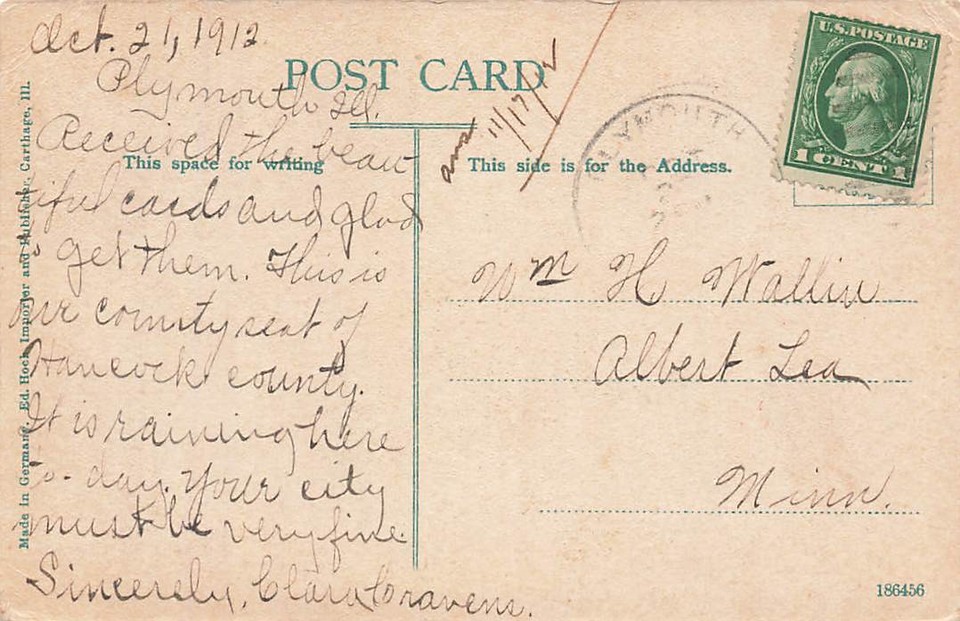 Oct. 21, 1912.
Plymouth Ill.
Received the beau
tiful cards and glad
to get them. This is
our county seat of
Hancock county.
It is raining here
to-day. Your city
must be very fine.
Sincerely, Clara Cravens.
POST CARD
This space for writing
This side is for the Address.
ans 11/17/12
PLYMOUTH
U.S. POSTAGE
1 CENT 1
Wm H Wallin
Albert Lea
Minn.
Made in Germany, Ed. Hoch, Importer and Publisher, Carthage, Ill.
186456